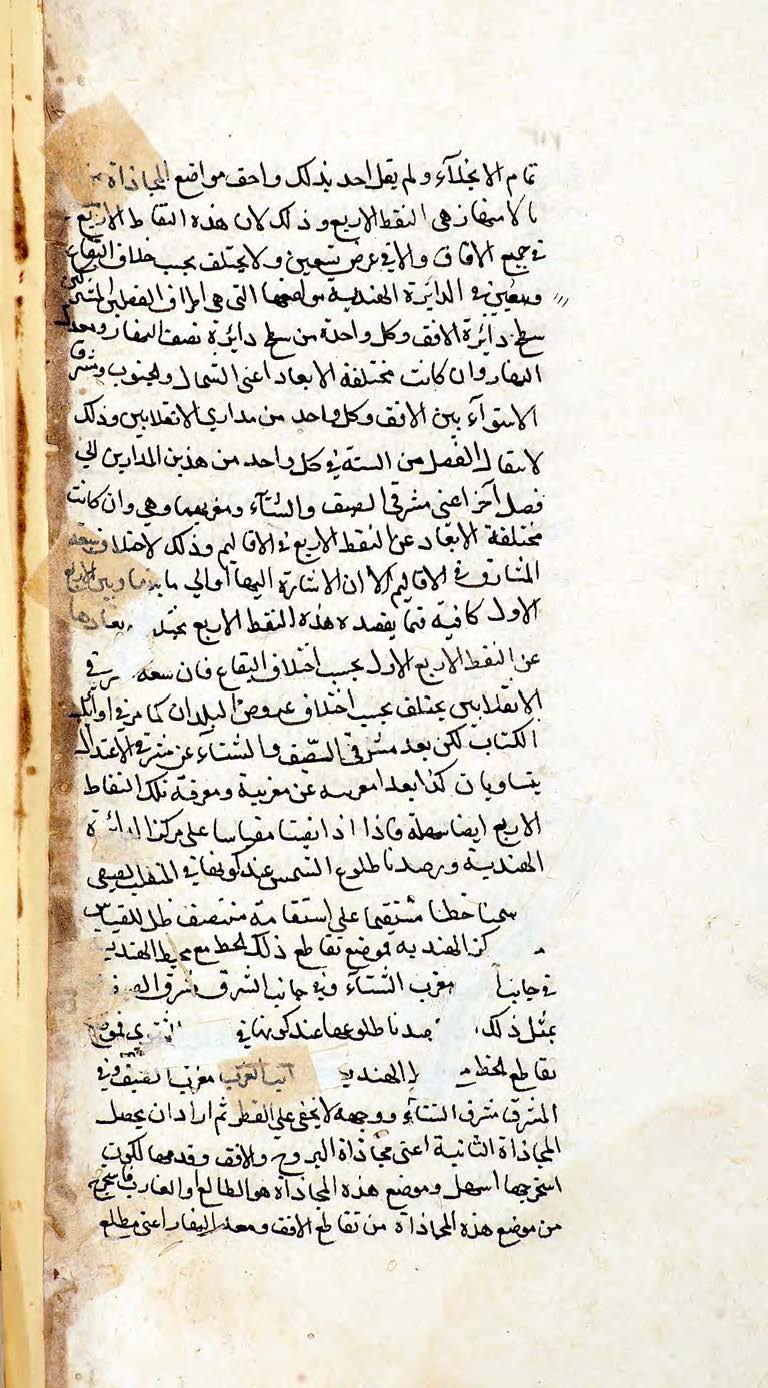 تمام الانجلاء ولم يقل احد بذلك واحق مواضع المحاذاة
بالامتحان هى النقط الاربع وذلك لان هذه النقاط الاربع
فى جميع الافاق والافى عرض تسعين ولا يختلف بحسب خلاف البقاع
وتتعين فى الدائرة الهندية مواضعها التى هى اطراف الفصلين المشتركين
سطح دائرة الافق وكل واحدة من سطح دائرة نصف النهار ومعدل
النهار وان كانت مختلفة الابعاد اعنى الشمال والجنوب ومشرق
الاستوآء بين الافق وكل واحد من مدارى الانقلابين وذلك
لانتقال الفصل من السنة فى كل واحد من هذين المدارين الى
فصل آخر اعنى مشرقى الصيف والشتآء ومغربيهما وهى وان كانت
مختلفة الابعاد عن النقط الاربع فى الاقاليم وذلك لاختلاف سعة
المشارق فى الاقاليم الا ان الاشارة اليها او الى ما بينها وبين الاربع
الاول كافية فيما يقصد هذه النقط الاربع ابعادها
عن النقط الاربع الاول بحسب اختلاف البقاع فان سعة مشرقى
الانقلابين يختلف بحسب اختلاف عروض البلدان كما مر فى اوائل
الكتاب لكن بعد مشرقى الصيف والشتاء عن مشرق الاعتدال
يتساويان كذا بعد مغربيه عن مغربية ومعرفة تلك النقاط
الاربع ايضا سهلة فاذا اذا نصبنا مقياسا على مركز الدائرة
الهندية ورصدنا طلوع الشمس عند كونها فى المنقلب الصيفى
سمنا خطا مستقيما على استقامة منتصف ظل المقياس
كز الهندية فموضع تقاطع ذلك الخط مع محيط الهندية
فى جانب مغرب الشتآء وفى جانب الشرق مشرق
بمثل ذلك صدنا طلوعها عند كونها فى
تقاطع الخط الهندية مغرب الصيف وفى
المشرق مشرق الشتآء ووجهه لا يخفى على الفطن ثم اراد ان يحصل
المحاذاة الثانية اعنى محاذاة البروج والافق وقدمها لكون
استخراجها اسهل وموضع هذه المحاذاة هو الطالع او الغارب
من موضع هذه المحاذاة من تقاطع الافق ومعدل النهار اعنى مطلع